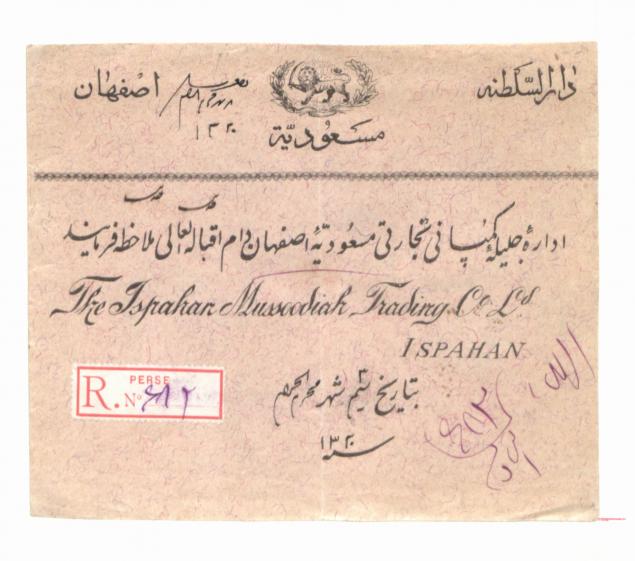 دارالسلطنه اصفهان
مسعودیّه
۱۳۲۰
ادارهٔ جلیلهٔ کمپانی تجارتی مسعودیّهٔ اصفهان دام اقباله العالی ملاحظه فرمایند
The Ispahan Mussoodiah Trading Co. Ld
ISPAHAN
PERSE
R. No ۴۸۲
بتاریخ شهر محرم الحرام
سنه ۱۳۲۰